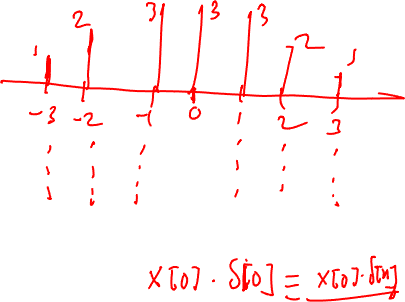 1 2 3 3 3 2 1
-3 -2 -1 0 1 2 3
x[0] · δ[0] = x[0] · δ[n]